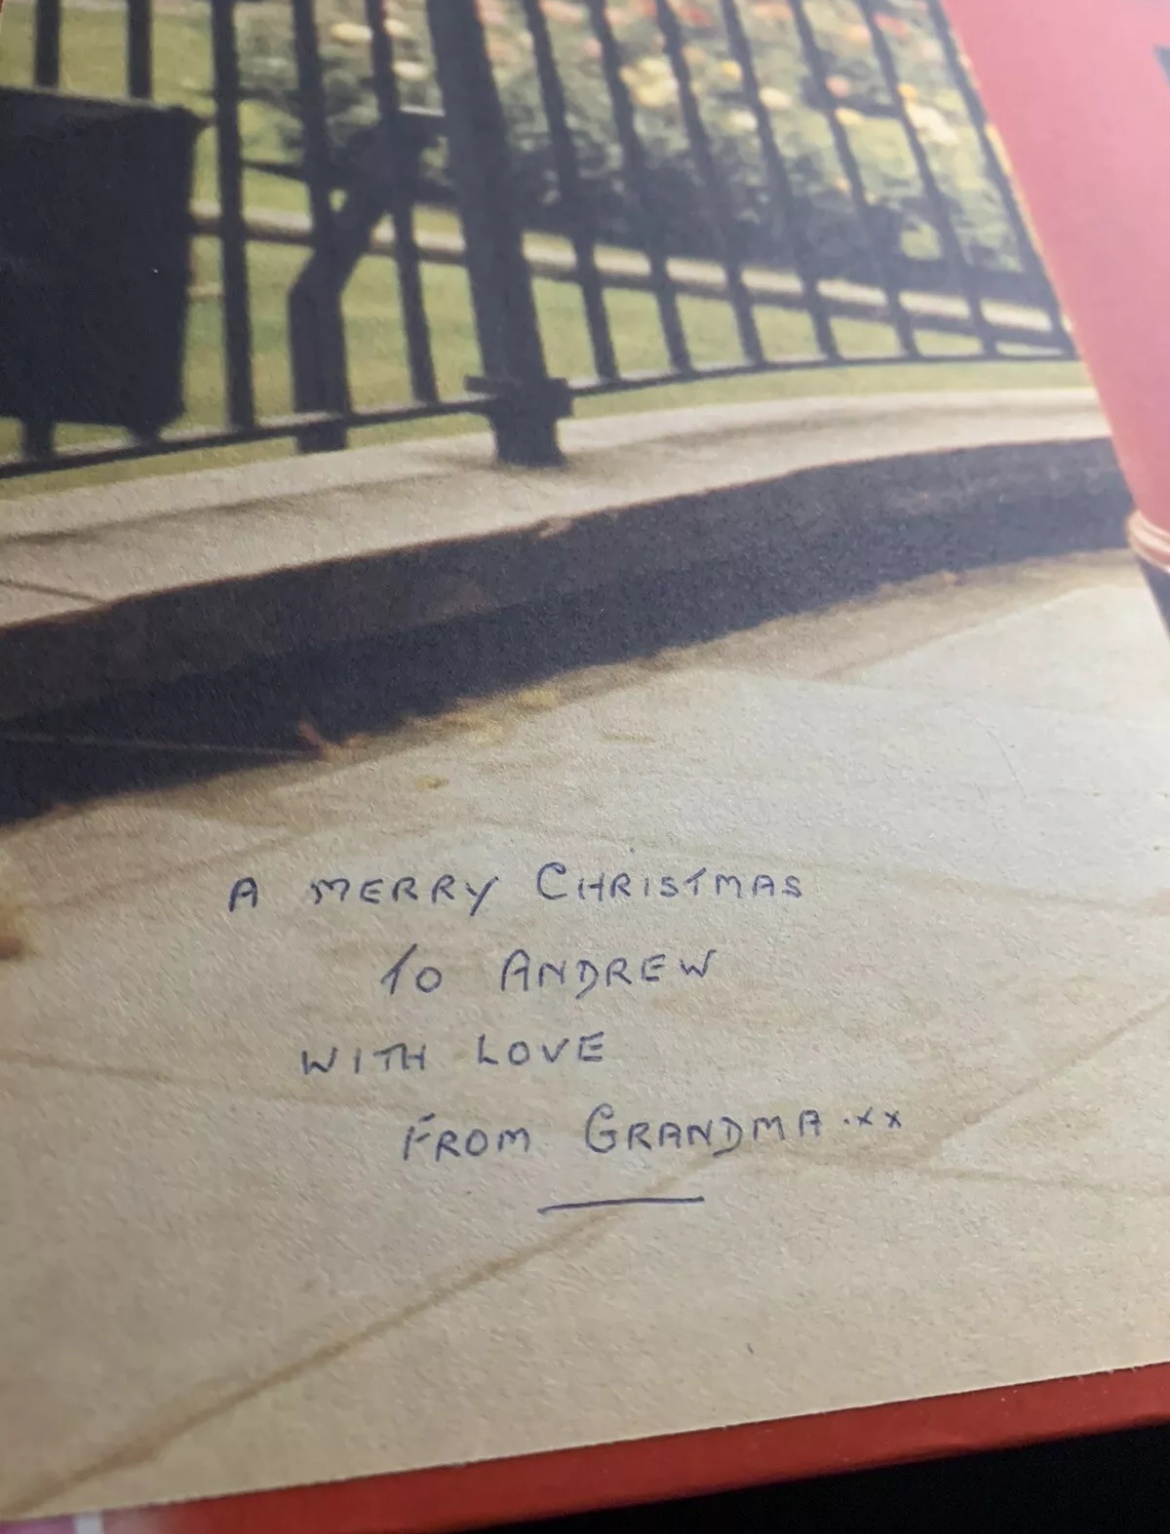 A MERRY CHRISTMAS
TO ANDREW
WITH LOVE
FROM GRANDMA.xx